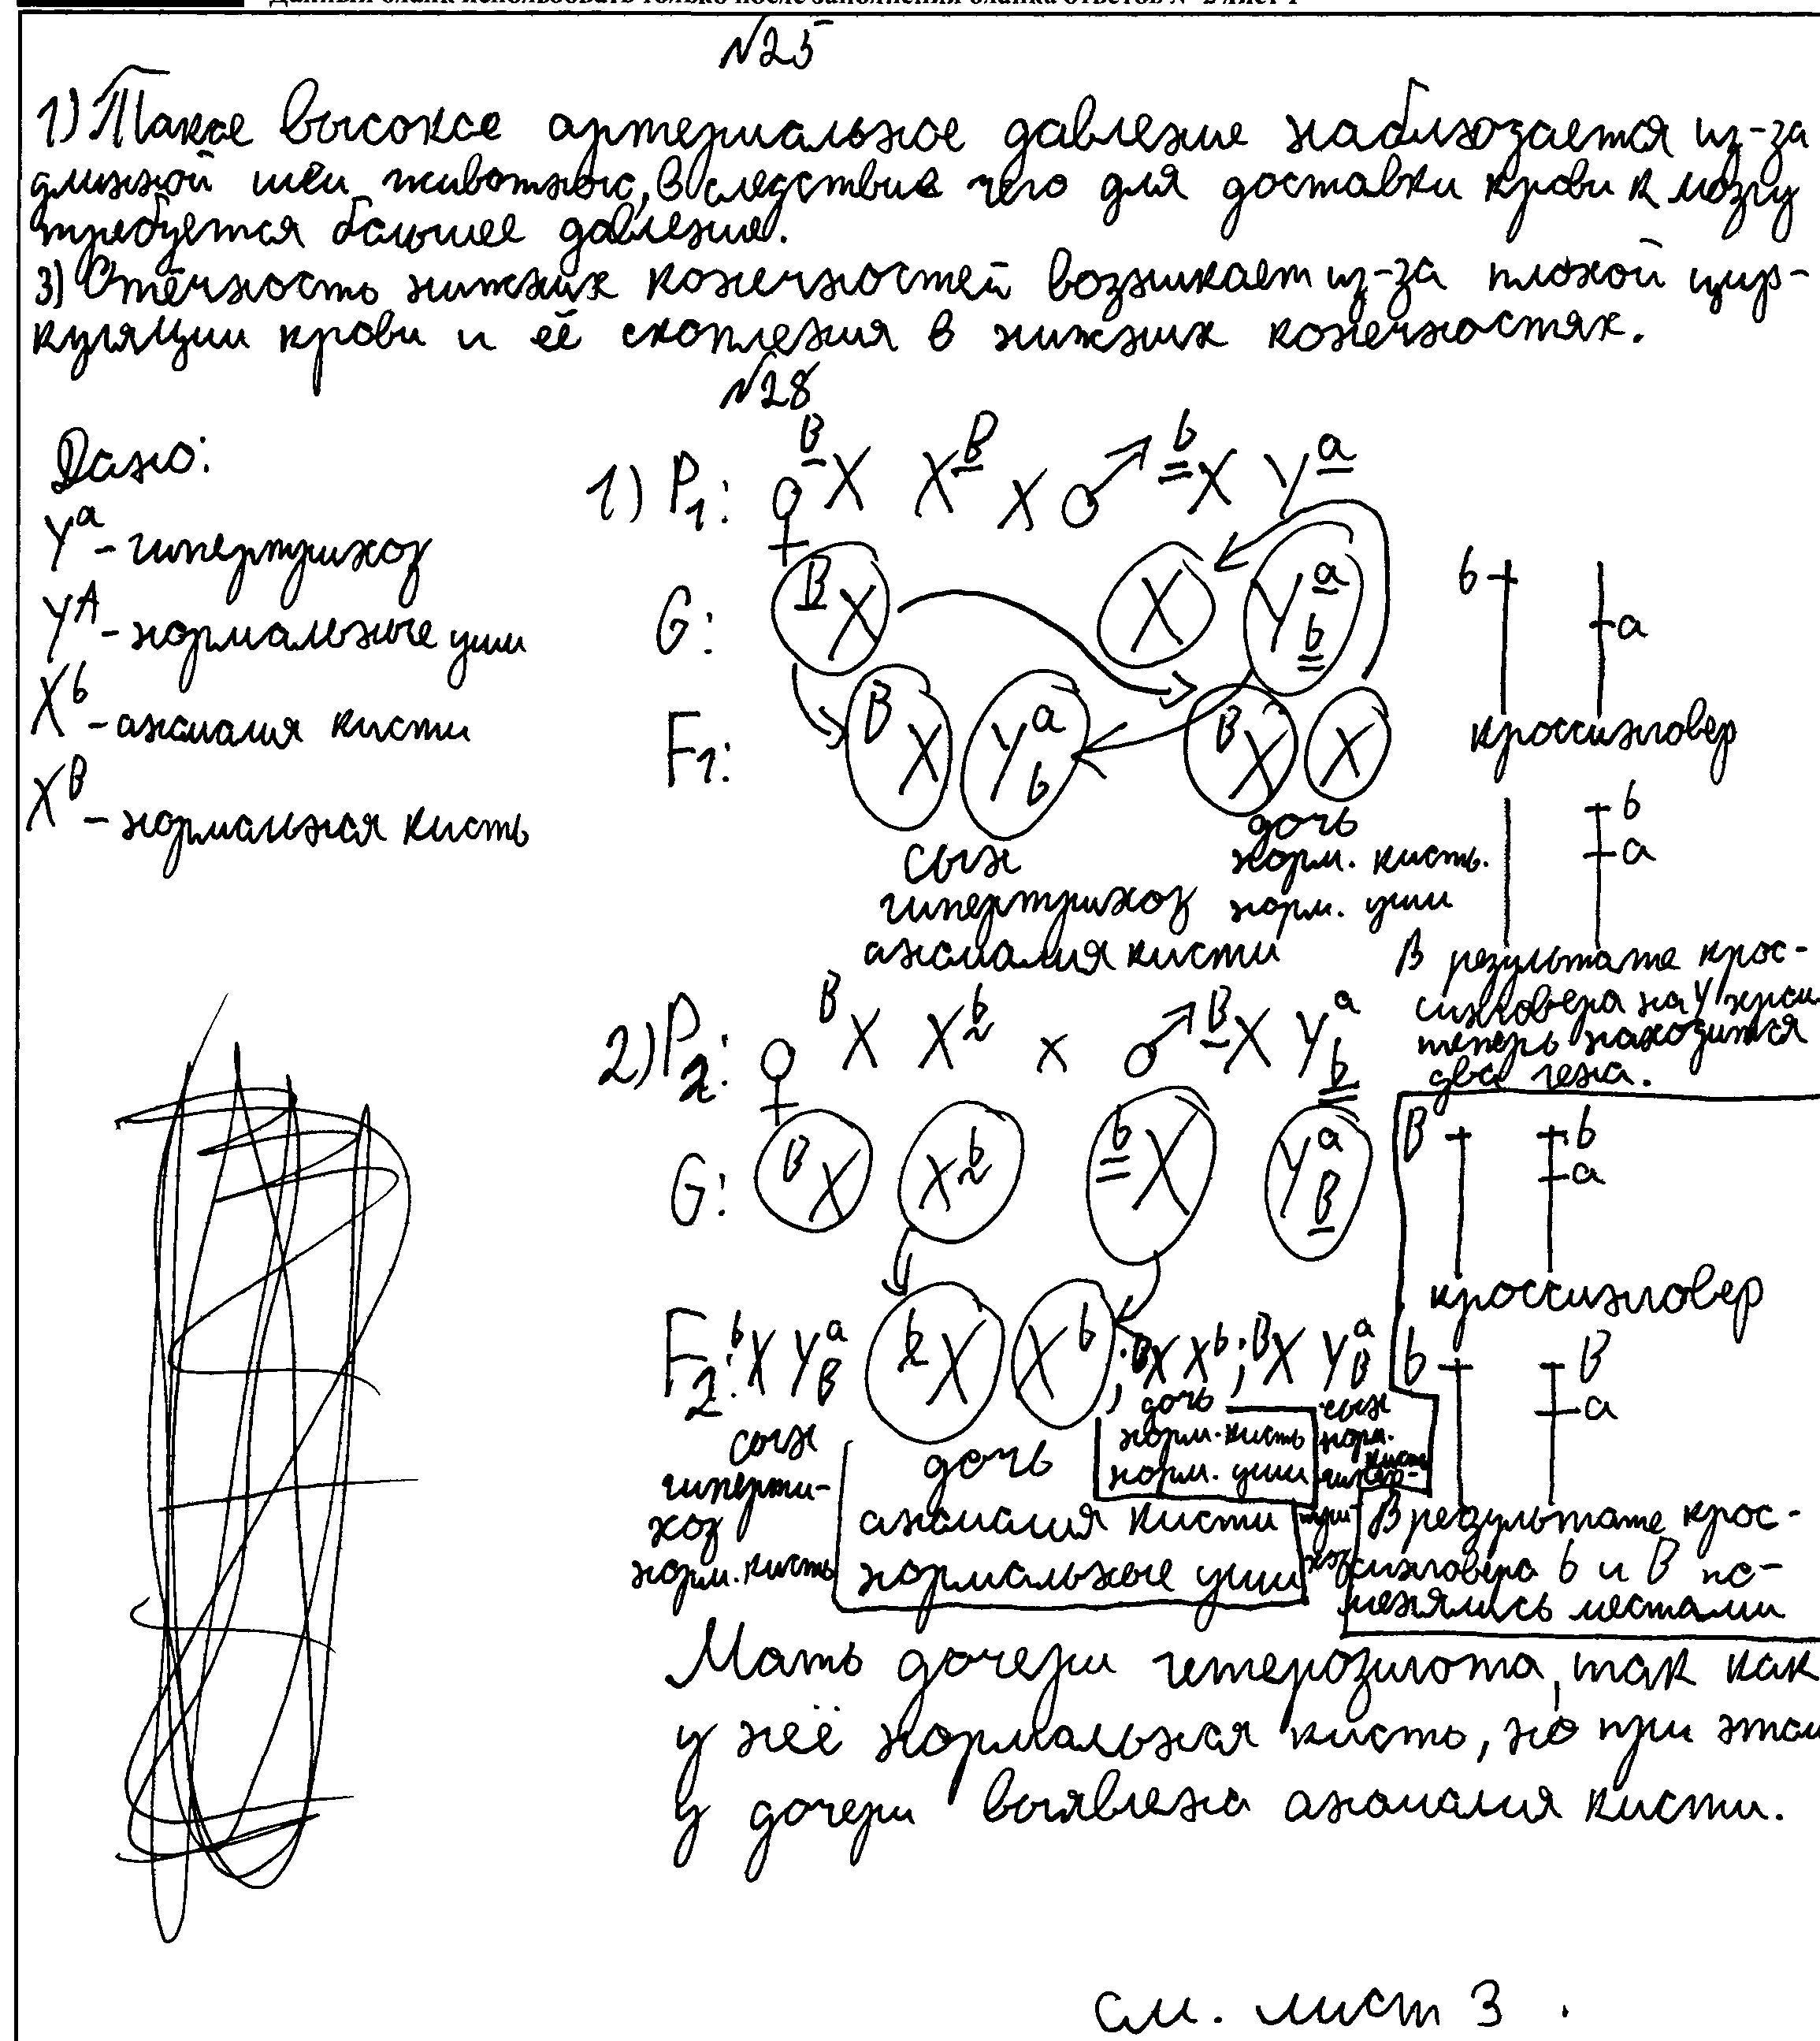 №25
1) Такое высокое артериальное давление наблюдается из-за
длинной шеи животного, вследствие чего для доставки крови к мозгу
требуется большее давление.
3) Отёчность нижних конечностей возникает из-за плохой цир-
куляции крови и её скопления в нижних конечностях.
№28
Дано:
Yᵃ - гипертрихоз
Yᴬ - нормальные уши
Xᵇ - аномалия кисти
Xᴮ - нормальная кисть
1) P₁: ♀ ᴮX Xᴮ x ♂ ᵇX Yᵃ
G: ᴮX X Yᵃb
F₁: ᴮX Yᵃb ᴮX X
сын
гипертрихоз
аномалия кисти
дочь
норм. кисть.
норм. уши
b a
кроссинговер
b
a
В результате крос-
синговера на Y хром
теперь находится
два гена.
2) P₂: ♀ ᴮX Xᵇ x ♂ ᴮX Yᵃb
G: ᴮX Xᵇ ᵇX YᵃB
F₂: ᵇX YᵃB ᵇX Xᵇ ; ᴮX Xᵇ ; ᴮX YᵃB
сын
гиперти-
хоз
норм. кисть
дочь
аномалия кисти
нормальные уши
дочь
норм. кисть
норм. уши
сын
норм.
кисть
гипер-
три
хоз
B b
a
кроссинговер
b B
a
В результате крос-
синговера b и B по-
менялись местами
Мать дочери гетерозигота, так как
у неё нормальная кисть, но при этом
у дочери выявлена аномалия кисти.
см. лист 3